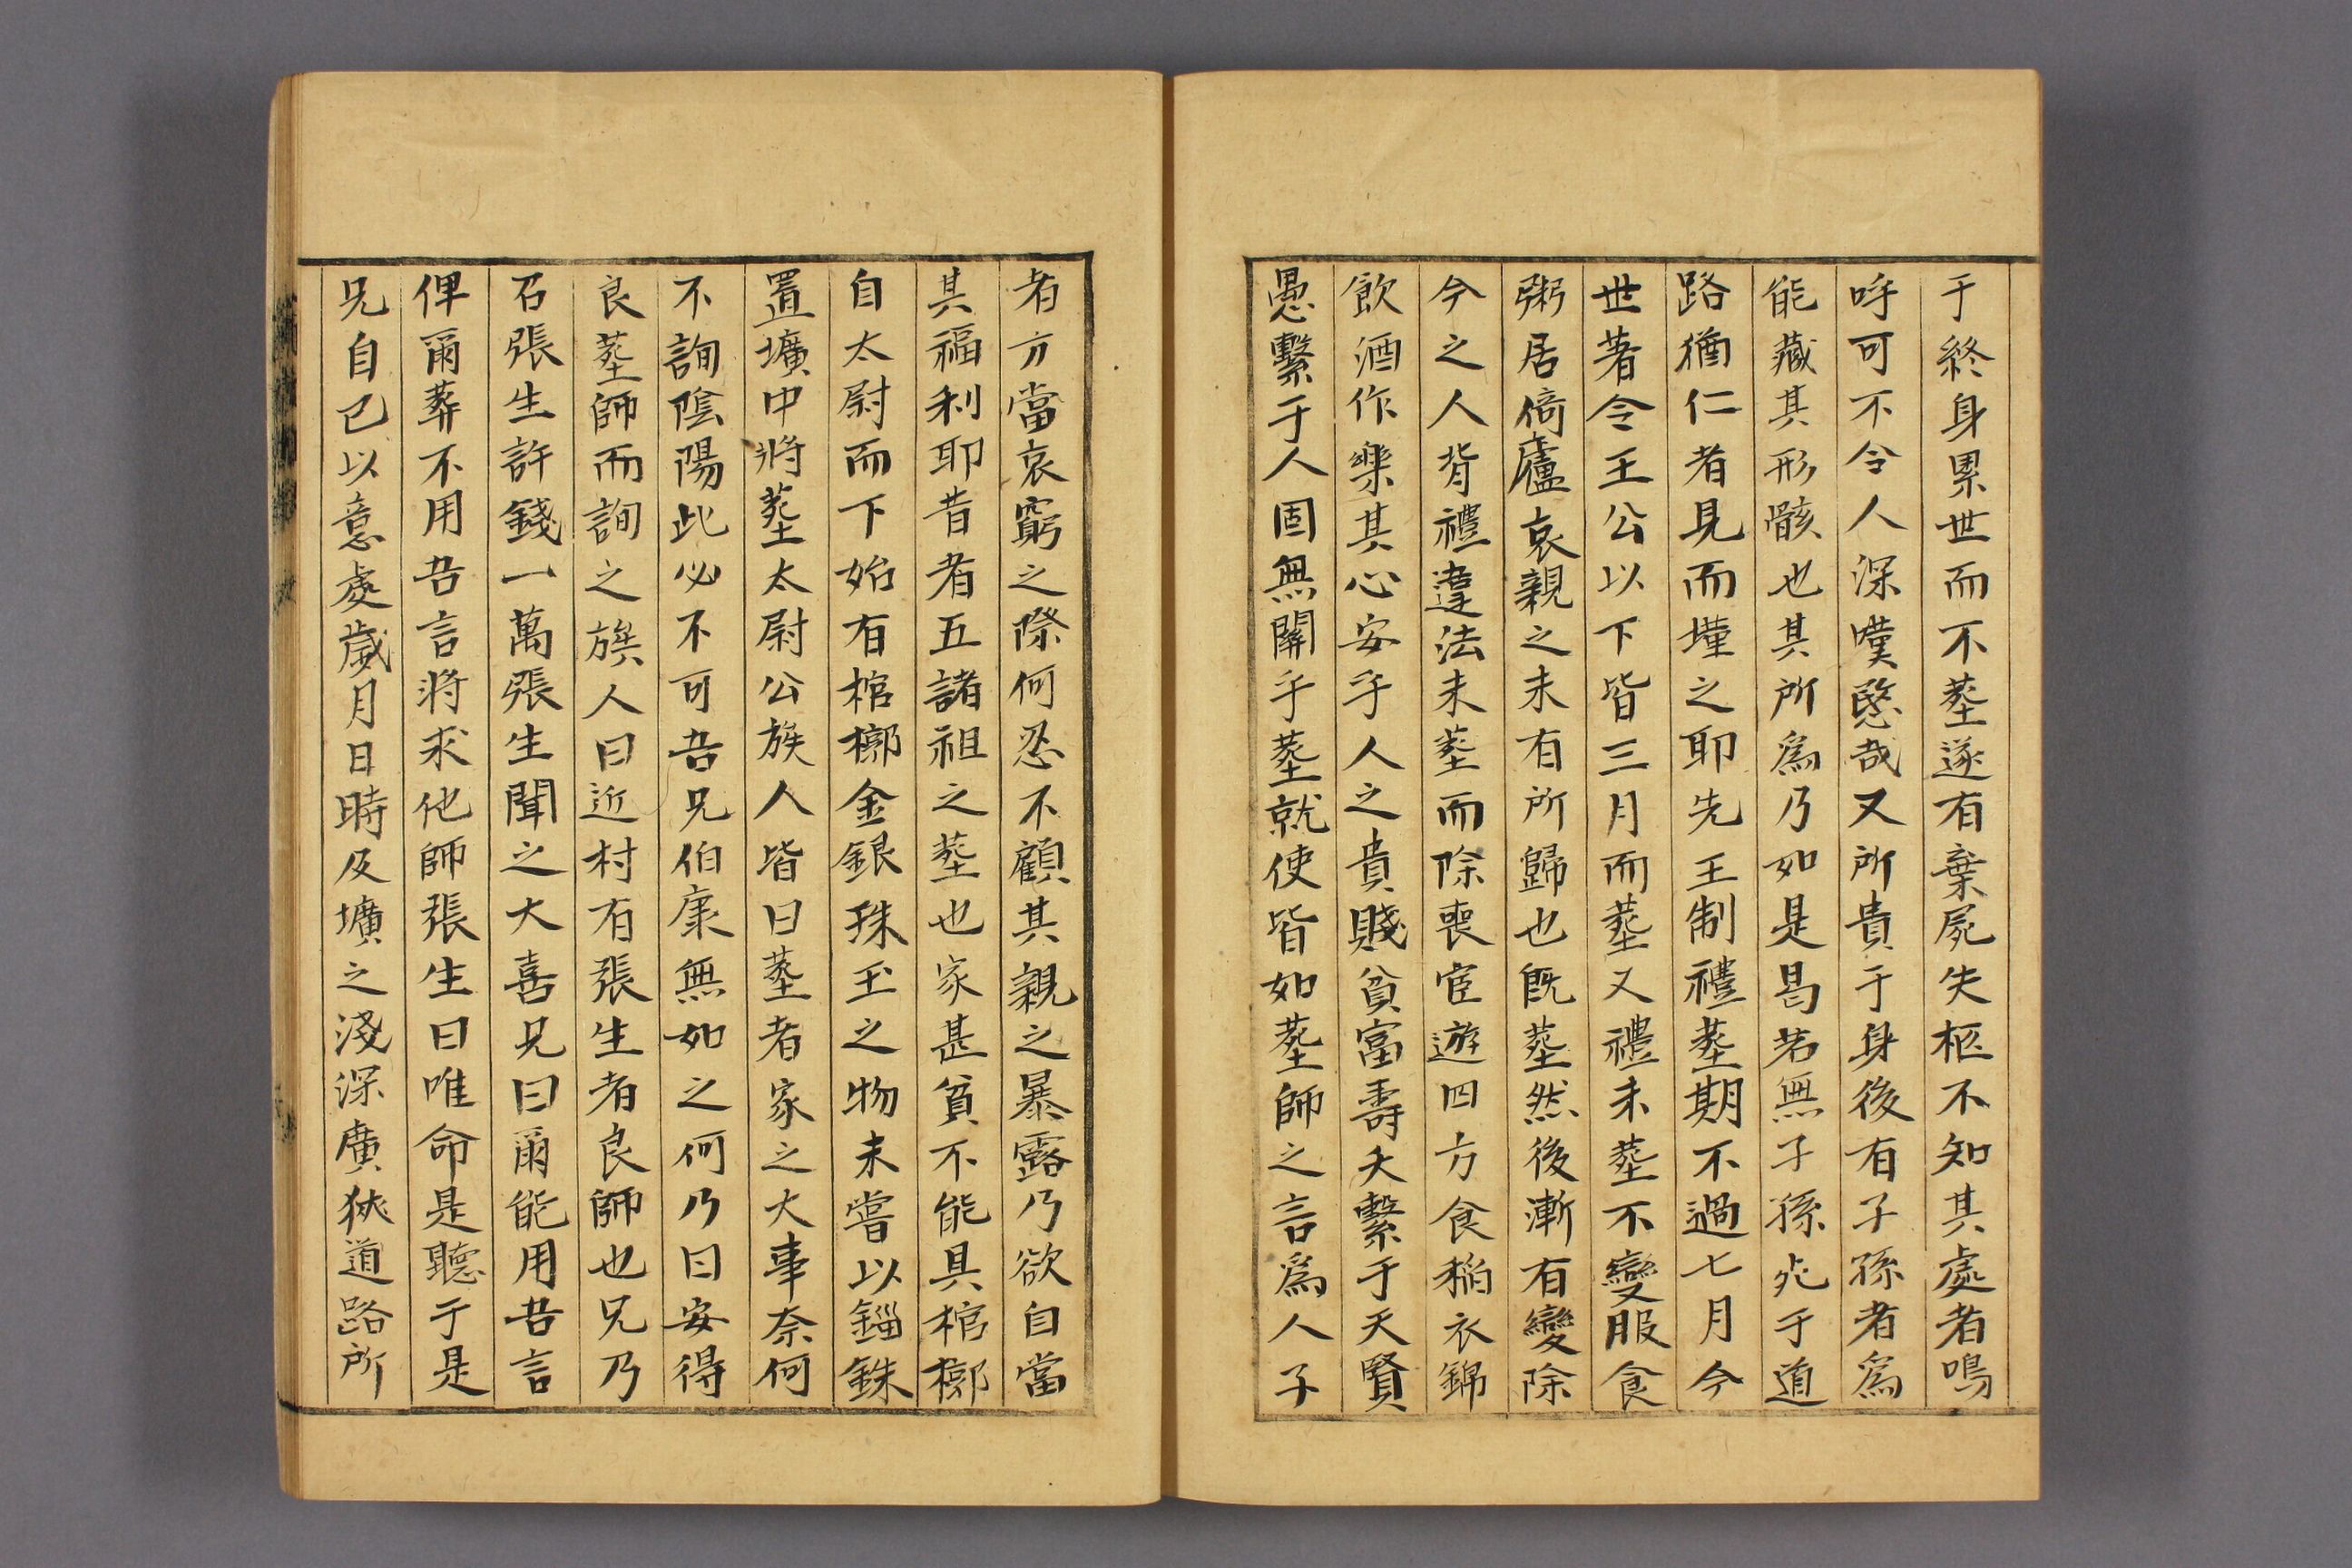 于終身累世而不塟遂有棄屍失柩不知其處者嗚
呼可不令人深嘆愍哉又所貴于身後有子孫者爲
能藏其形骸也其所爲乃如是曷若無子孫死于道
路猶仁者見而墐之耶先王制禮塟期不過七月今
世著令王公以下皆三月而塟又禮未塟不變服食
粥居倚廬哀親之未有所歸也既塟然後漸有變除
今之人背禮違法未塟而除喪宦遊四方食稻衣錦
飲酒作樂其心安乎人之貴賤貧富壽夭繫于天賢
愚繫于人固無關乎塟就使皆如塟師之言爲人子
者方當哀窮之際何忍不顧其親之暴露乃欲自當
其福利耶昔者五諸祖之塟也家甚貧不能具棺槨
自太尉而下始有棺槨金銀珠玉之物未嘗以錙銖
置壙中將塟太尉公族人皆曰塟者家之大事奈何
不詢陰陽此必不可吾兄伯康無如之何乃曰安得
良塟師而詢之族人曰近村有張生者良師也兄乃
召張生許錢一萬張生聞之大喜兄曰爾能用吾言
俾爾葬不用吾言將求他師張生曰唯命是聽于是
兄自已以意處歲月日時及壙之淺深廣狹道路所